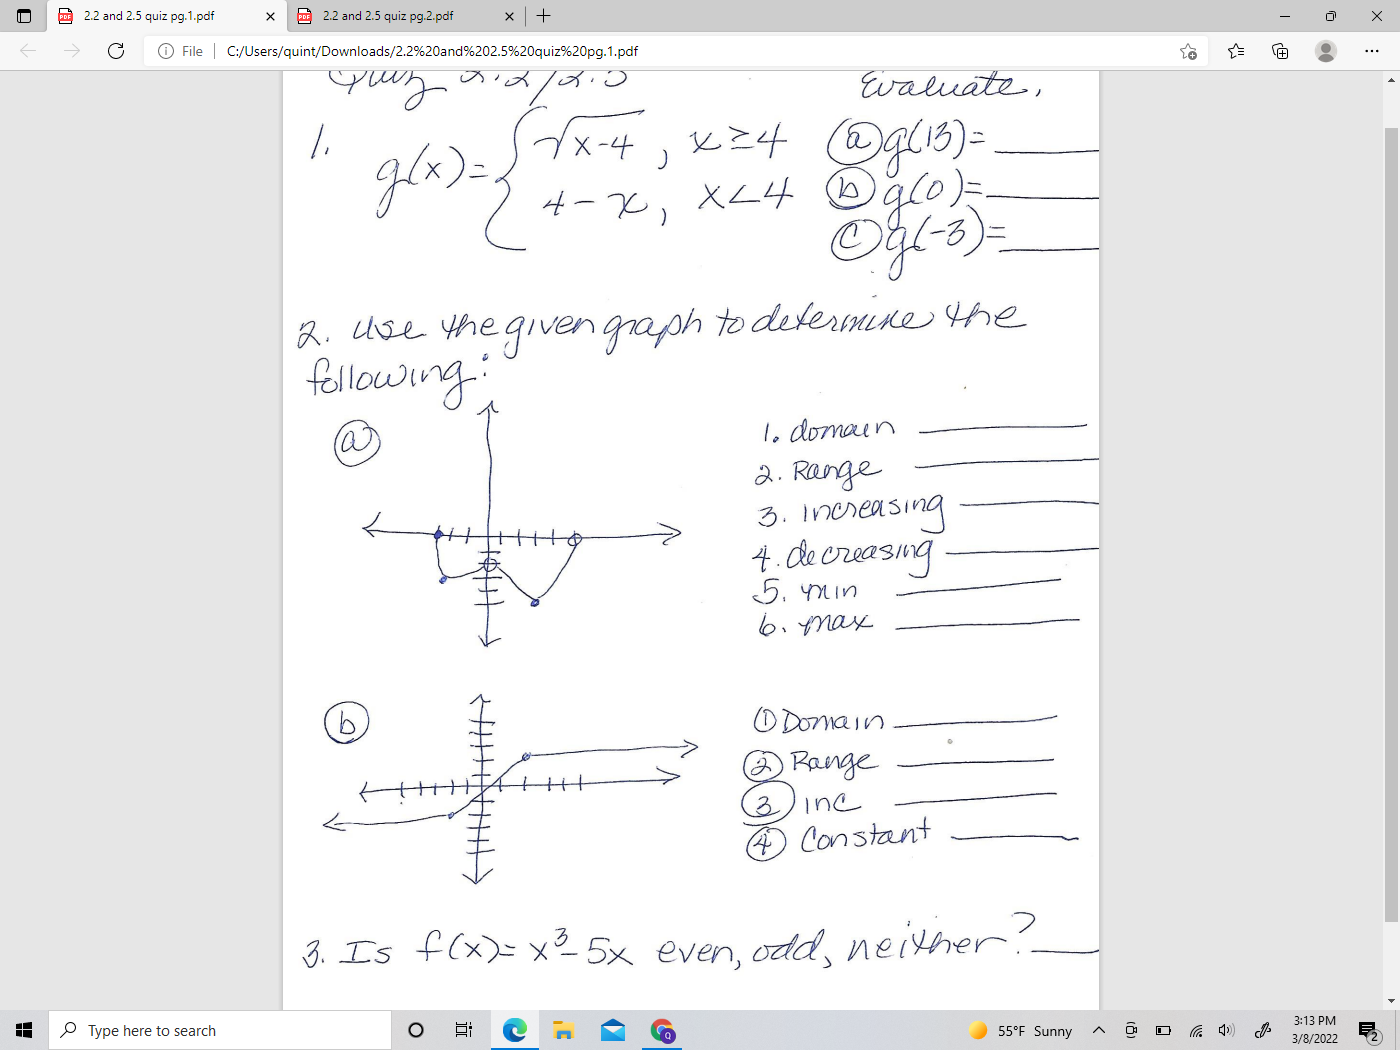 2.2 and 2.5 quiz pg.1.pdf
2.2 and 2.5 quiz pg.2.pdf
File
C:/Users/quint/Downloads/2.2%20and%202.5%20quiz%20pg.1.pdf
Quiz 2.2/2.5
Evaluate.
1. g(x)= { √x-4 , x≥4
4-x, x<4
(a) g(13)=
(b) g(0)=
(c) g(-3)=
2. Use the given graph to determine the
following:
(a)
1. domain
2. Range
3. increasing
4. decreasing
5. min
6. max
(b)
① Domain
② Range
③ inc
④ Constant
3. Is f(x)= x³-5x even, odd, neither?
Type here to search
55°F Sunny
3:13 PM
3/8/2022
2